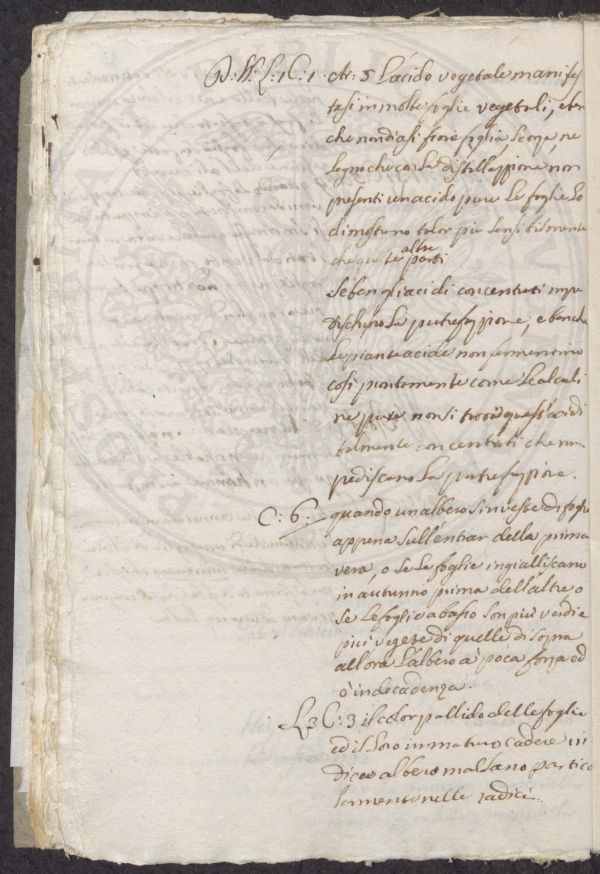 D: H: L: 1 C: 1 · Ar: 5 L'acido vegetale manifes
tasi in molte foglie vegetali, e ben
che non diasi fiore foglia scorza, ne
legno che co la distillazzione non
presenti un acido pure le foglie lo
dimostrano tolor più sensibilmente
che que te altre parti
Se ben gli acidi concentrati impe
dischino la putrefazzione, e benche
le piante acide non fermentino
così prontamente come le alcali
ne pure non si trova quest'acidi
bilmente concentrati che im
pediscano la putrefazzione.
C: 6: quando un albero si riveste di foglie
appena sull'entrar della prima
vera, o se le foglie ingialliscano
in autunno prima dell'altre o
se le foglie abasso son più verdi e
più vegete di quelle di sopra
allora l'albero a poca forza ed
è in decadenza.
L 3 C: 3 il color pallido delle foglie
ed il loro immaturo cadere in
dica albero malsano partico
larmente nelle radici.